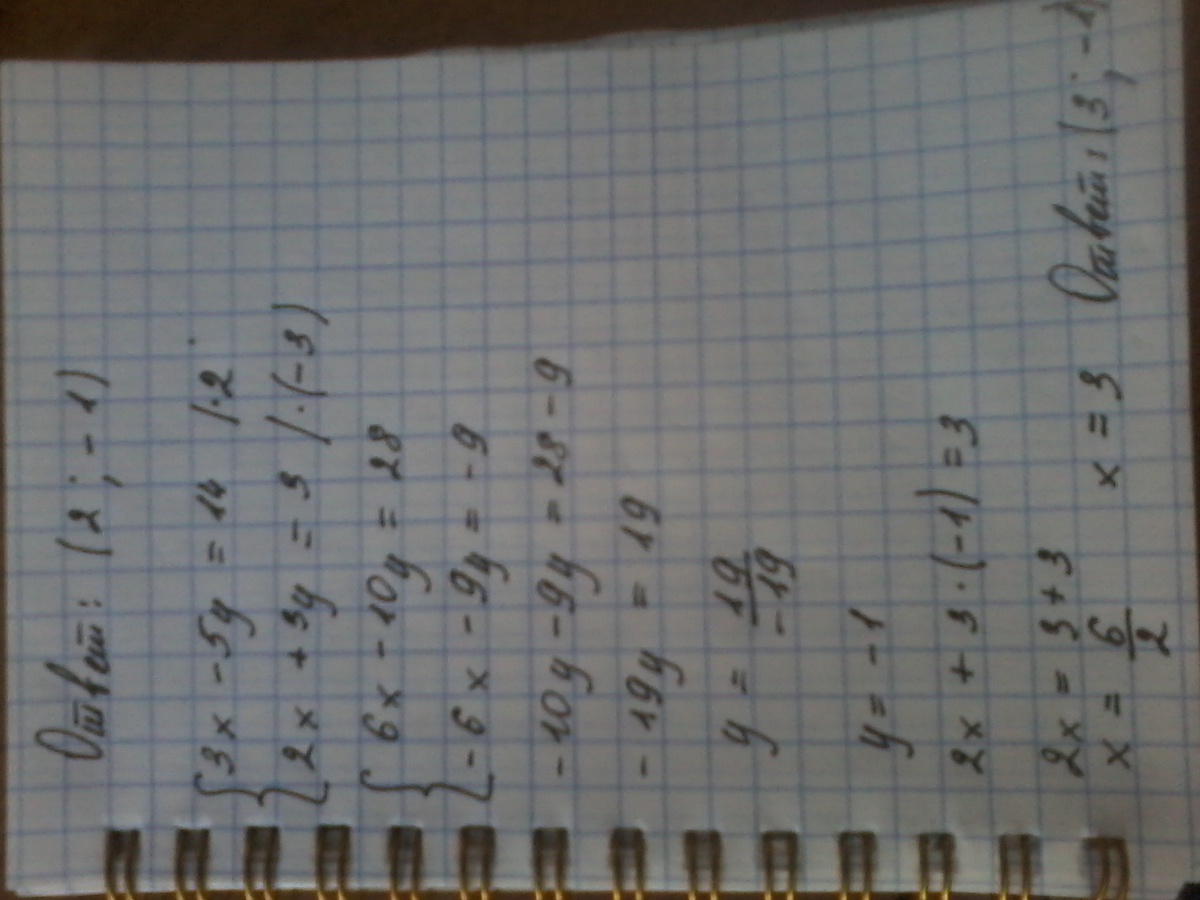 Ответ: (2 ; -1)
{3x - 5y = 14 /·2
{2x + 3y = 3 /·(-3)
{6x - 10y = 28
{-6x - 9y = -9
-10y - 9y = 28 - 9
-19y = 19
y = 19/-19
y = -1
2x + 3·(-1) = 3
2x = 3 + 3
x = 6/2 x = 3 Ответ: (3 ; -1)